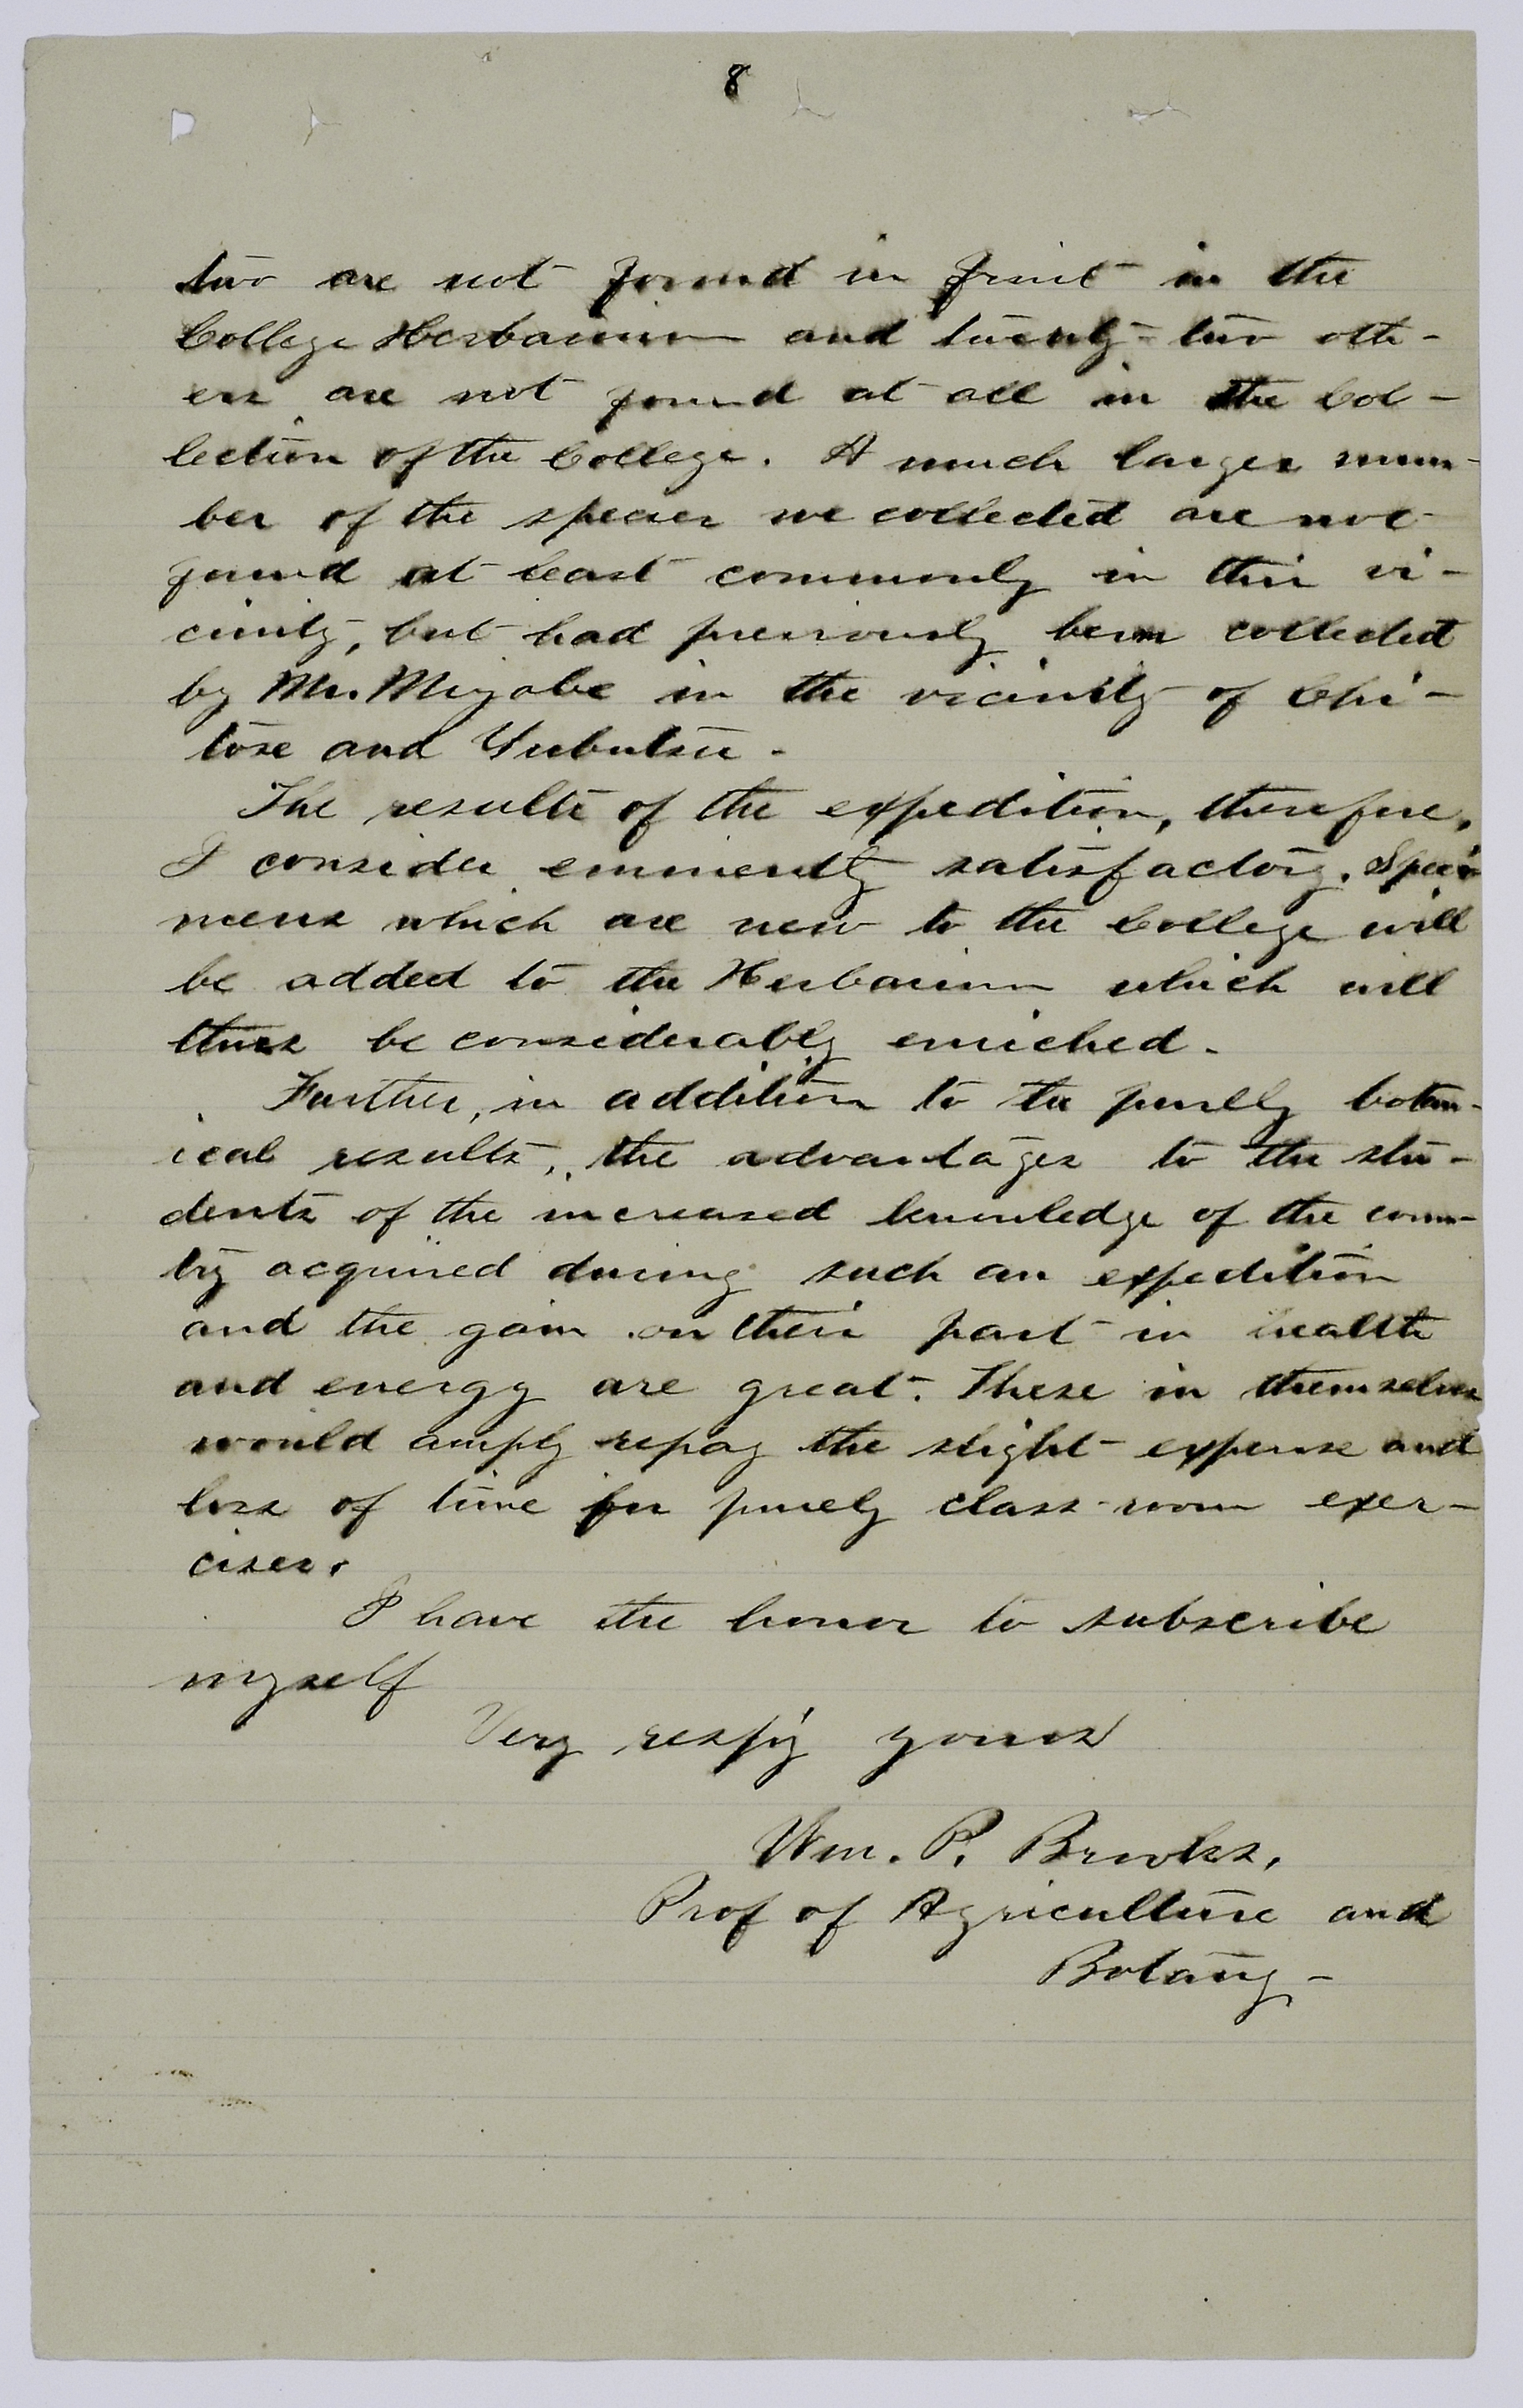 8
two are not found in fruit in the
College Herbarium and twenty-two oth-
ers are not found at all in the Col-
lection of the College. A much larger num-
ber of the species we collected are not
found at least commonly in this vi-
cinity, but had previously been collected
by Mr. Miyabe in the vicinity of Chi-
tose and Yubutsu -
The results of the expedition, therefore,
I consider eminently satisfactory. Speci-
mens which are new to the College will
be added to the Herbarium which will
thus be considerably enriched.
Further, in addition to the purely botan-
ical results, the advantages to the stu-
dents of the increased knowledge of the coun-
try acquired during such an expedition
and the gain on their part in health
and energy are great. These in themselves
would amply repay the slight expense and
loss of time for purely class-room exer-
cises.
I have the honor to subscribe
myself
Very resp'y yours
Wm. P. Brooks,
Prof of Agriculture and
Botany -